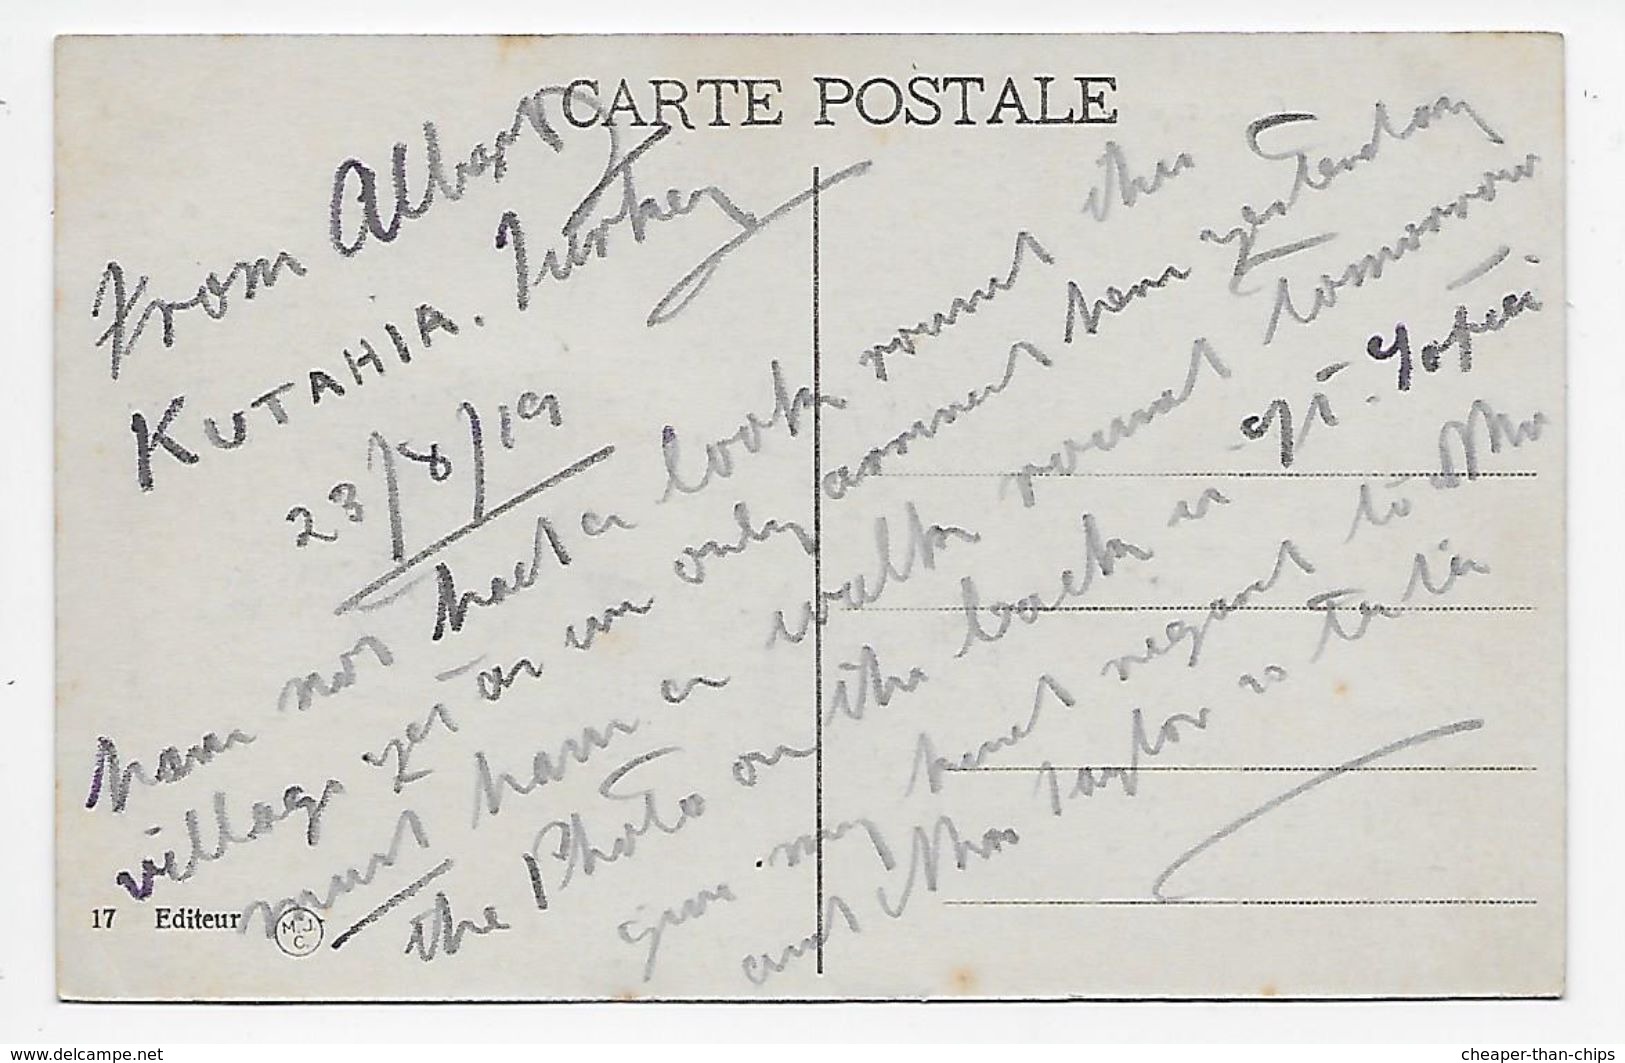 CARTE POSTALE
From Albert
KUTAHIA. Turkey
23/8/19
have not had a look round this
village yet as we only arrived here yesterday
must have a walk round tomorrow
the Photo on the back is of St. Sofia
give my kind regards to Mr
and Mrs Taylor
17 Editeur M.J.C.
www.delcampe.net
cheaper-than-chips